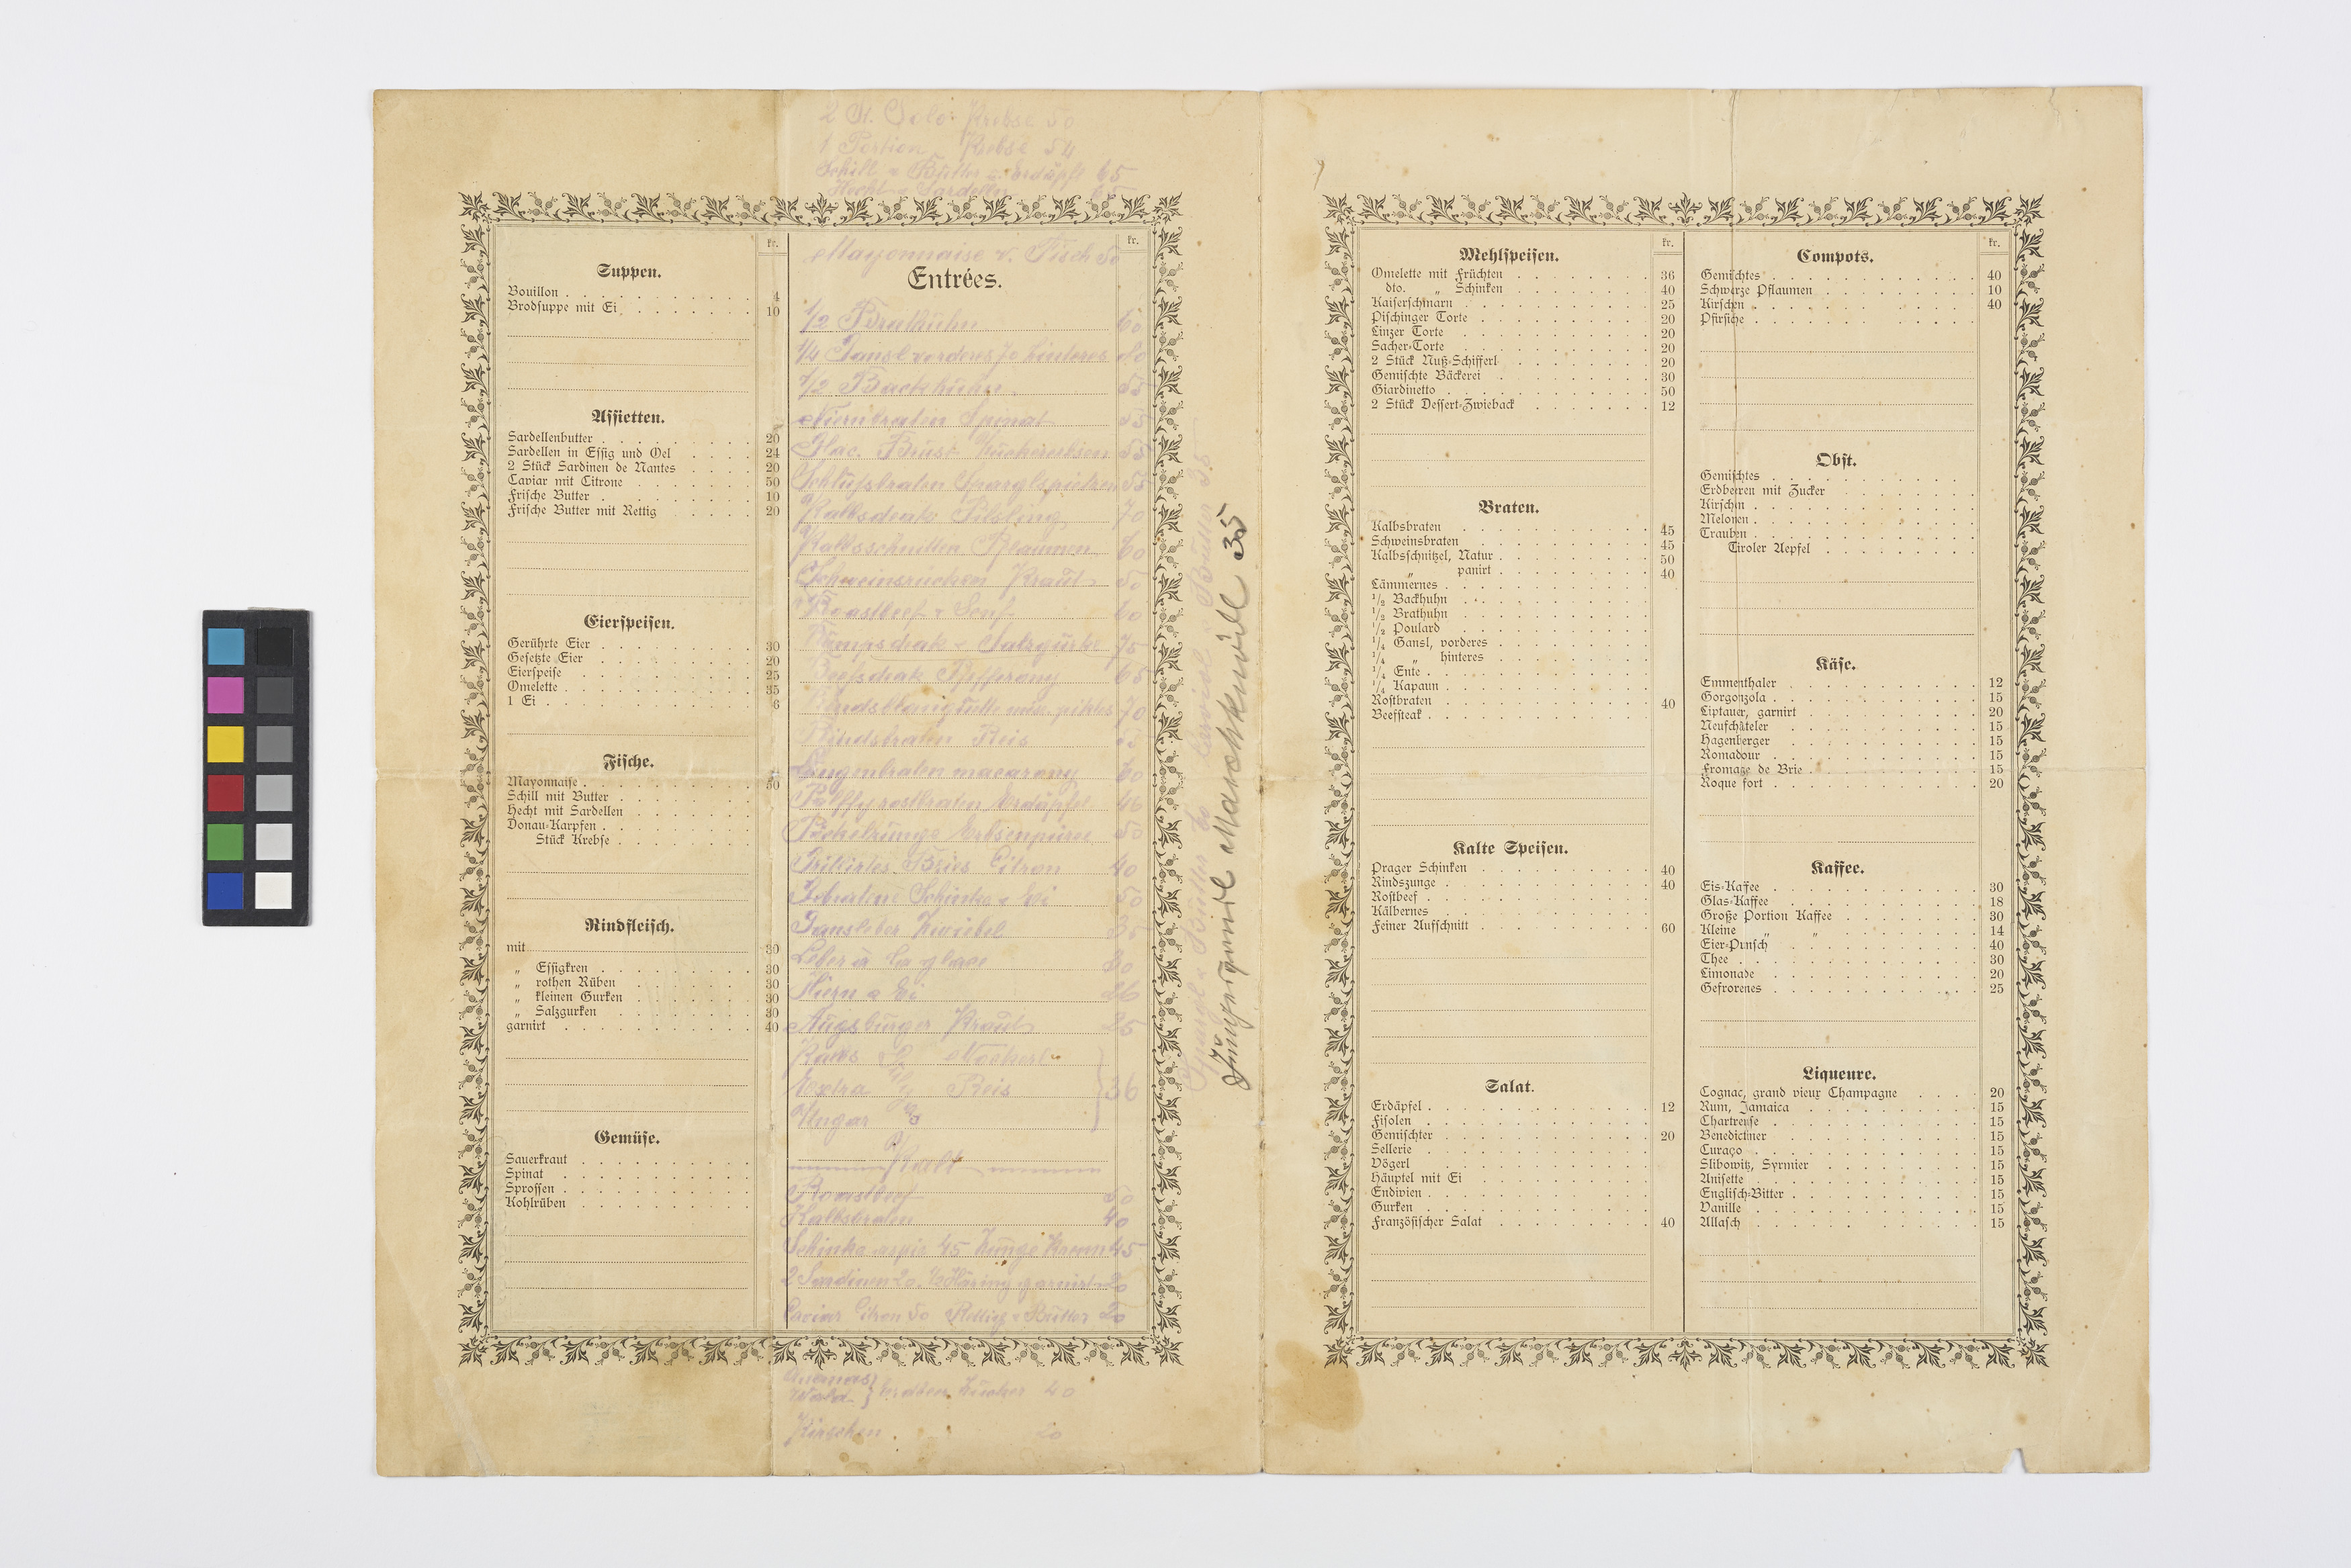 2 St. Solo Krebse 50
1 Portion Krebse 54
Schill v Butter u. Erdäpfl 65
Hecht v Sardellen 65
kr.
Suppen.
Bouillon 4
Brodsuppe mit Ei 10
Assietten.
Sardellenbutter 20
Sardellen in Essig und Oel 24
2 Stück Sardinen de Nantes 20
Caviar mit Citrone 50
Frische Butter 10
Frische Butter mit Rettig 20
Eierspeisen.
Gerührte Eier 30
Gesetzte Eier 20
Eierspeise 25
Omelette 35
1 Ei 8
Fische.
Mayonnaise 50
Schill mit Butter
Hecht mit Sardellen
Donau-Karpfen
Stück Krebse
Rindfleisch.
mit 30
„ Essigkren 30
„ rothen Rüben 30
„ kleinen Gurken 30
„ Salzgurken 30
garnirt 40
Gemüse.
Sauerkraut
Spinat
Sprossen
Kohlrüben
kr.
Mayonnaise v. Fisch 50
Entrées.
1/2 Brathuhn 60
1/4 Gansl vorderes 70 hinteres 80
1/2 Backhuhn 55
Nierenbraten Spinat 55
Glac. Brust Zuckererbsen 55
Schlussbraten Sparglspitzen 55
Kalbsteak Pilsling 70
Kalbsschnitten Pflaumen 60
Schweinsrücken Kraut 50
Roastbeef v Senf 60
Rumpsteak v Salzgurke 75
Beefsteak 65
70
Rindsbraten Reis
Lungenbraten macarony 60
Palffyrostbraten Erdäpfel 46
Pöckelzunge Erbsenpüree 50
Bries Citron 40
Schinken v Ei 50
Gansleber Zwiebel 35
Leber à la glace 30
Hirn v Ei 26
Augsburger Kraut 25
Nockerl
Extra Reis 36
Ungar
Kalt
Roastbeef 50
Kalbsbraten 40
Schinke aspic 45 Zunge Kren 45
2 Sardinen 20 1/2 Häring garnirt 20
Caviar Citron 50 Rettig v Butter 20
Ananas
Wald } Erdbeer Zucker 40
Kirschen 20
Spargl v Butter 60 Carviol v Butter 35
35
kr.
Mehlspeisen.
Omelette mit Früchten 36
dto. „ Schinken 40
Kaiserschmarn 25
Pischinger Torte 20
Linzer Torte 20
Sacher-Torte 20
2 Stück Nuß-Schifferl 20
Gemischte Bäckerei 30
Giardinetto 50
2 Stück Dessert-Zwieback 12
Braten.
Kalbsbraten 45
Schweinsbraten 45
Kalbsschnitzel, Natur 50
„ panirt 40
Lämmernes
1/2 Backhuhn
1/2 Brathuhn
1/2 Poulard
1/4 Gansl, vorderes
1/4 „ hinteres
1/4 Ente
1/4 Kapaun
Rostbraten 40
Beefsteak
Kalte Speisen.
Prager Schinken 40
Rindszunge 40
Rostbeef
Kälbernes
Feiner Aufschnitt 60
Salat.
Erdäpfel 12
Fisolen
Gemischter 20
Sellerie
Vögerl
Häuptel mit Ei
Endivien
Gurken
Französischer Salat 40
kr.
Compots.
Gemischtes 40
Schwarze Pflaumen 10
Kirschen 40
Pfirsiche
Obst.
Gemischtes
Erdbeeren mit Zucker
Kirschen
Melonen
Trauben
Tiroler Aepfel
Käse.
Emmenthaler 12
Gorgonzola 15
Liptauer, garnirt 20
Neufchâteler 15
Hagenberger 15
Romadour 15
Fromage de Brie 15
Roque fort 20
Kaffee.
Eis-Kaffee 30
Glas-Kaffee 18
Große Portion Kaffee 30
Kleine „ „ 14
Eier-Punsch 40
Thee 30
Limonade 20
Gefrorenes 25
Liqueure.
Cognac, grand vieux Champagne 20
Rum, Jamaica 15
Chartreuse 15
Benedictiner 15
Curaço 15
Slibowitz, Syrmier 15
Anisette 15
Englisch-Bitter 15
Vanille 15
Allasch 15